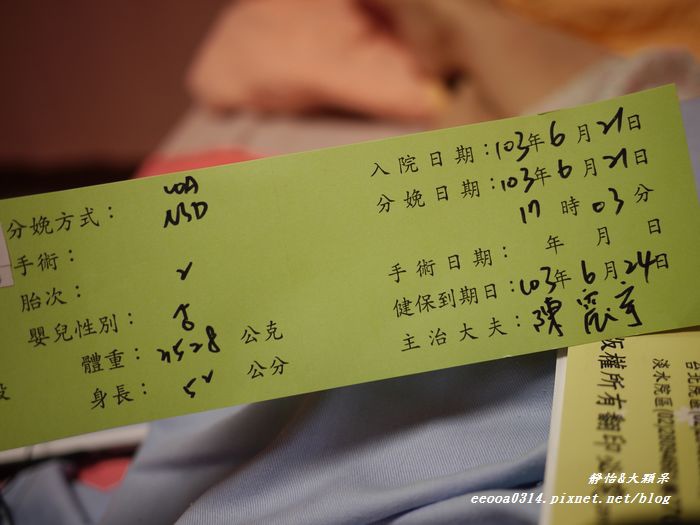 入院日期：103年6月21日
分娩方式： LOA NSD
分娩日期：103年6月21日
17時03分
手術：
手術日期： 年 月 日
胎次： 2
健保到期日：103年6月24日
嬰兒性別：
主治大夫：陳震宇
體重：3528 公克
身長：52 公分
版權所有翻印
台北院區
淡水院區(02)2809
靜怡&大顆呆
eeooa0314.pixnet.net/blog